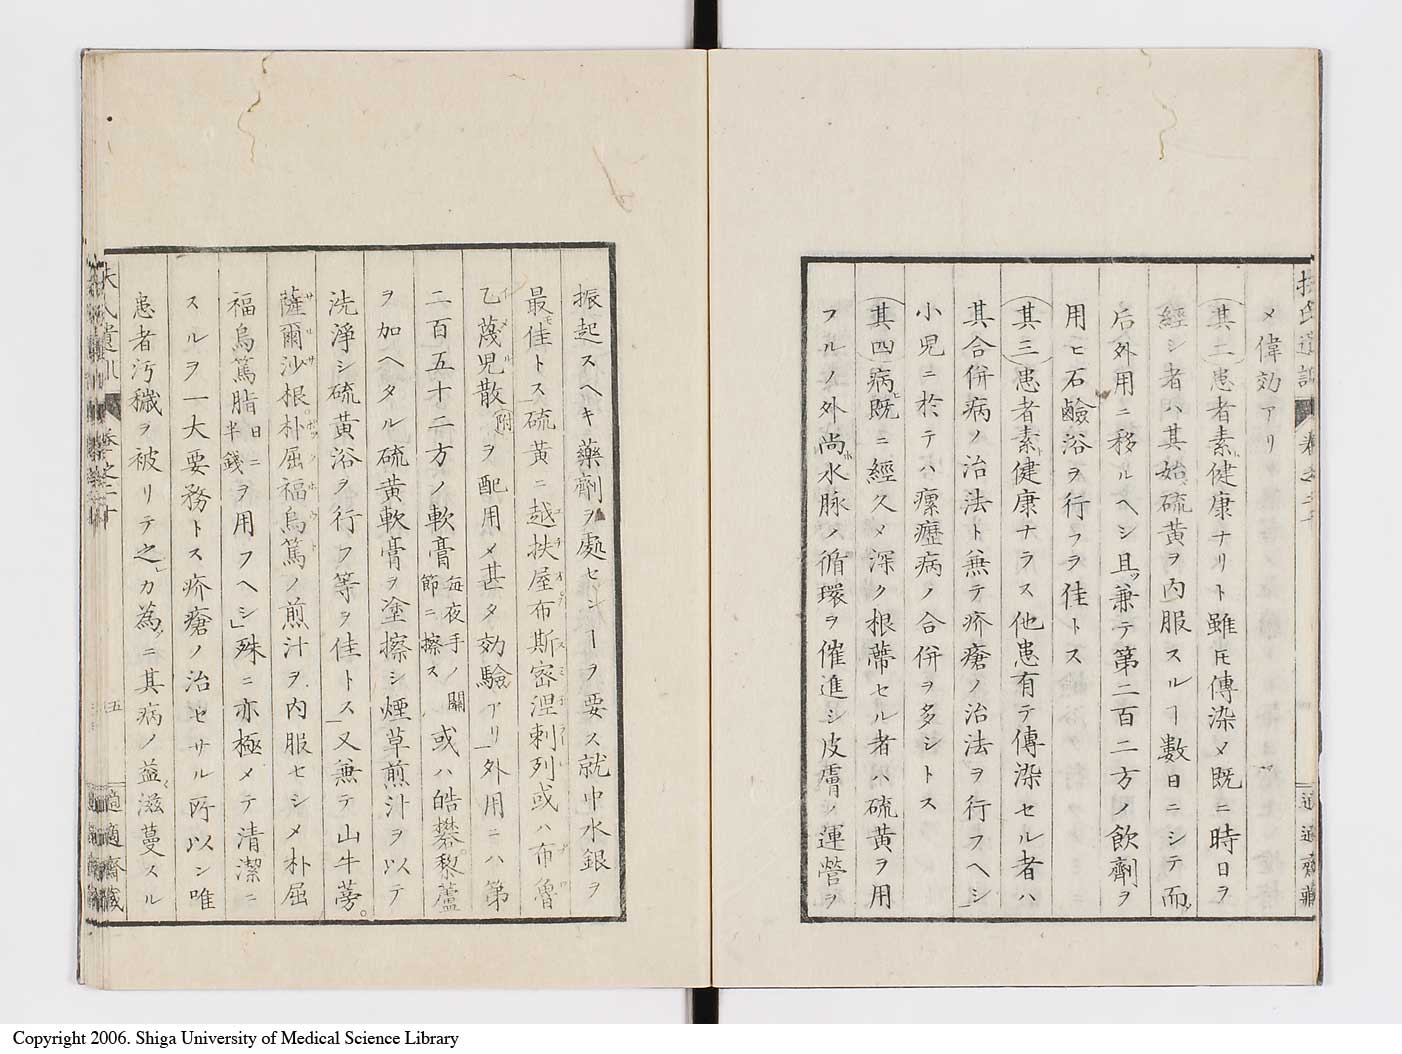 メ偉効アリ
其二患者素健康ナリト雖𪜈傳染メ既ニ時日ヲ
經シ者ハ其始硫黄ヲ内服スルヿ數日ニシテ而
后外用ニ移ルヘシ且兼テ第二百二方ノ飲劑ヲ
用ヒ石鹼浴ヲ行フヲ佳トス
其三患者素健康ナラス他患有テ傳染セル者ハ
其合併病ノ治法ト兼テ疥瘡ノ治法ヲ行フヘシ」
小児ニ於テハ瘰癧病ノ合併ヲ多シトス
其四病既ニ經久メ深ク根蔕セル者ハ硫黄ヲ用
フルノ外尚水脉ノ循環ヲ催進シ皮膚ノ運營ヲ
扶氏遺訓 巻之二十 適適齋藏
振起スヘキ藥劑ヲ處センヿヲ要ス就中水銀ヲ
最佳トス」硫黄ニ越扶屋布斯密涅刺列或ハ布魯
乙蔑児散附ヲ配用メ甚タ効驗アリ」外用ニハ第
二百五十二方ノ軟膏毎夜手ノ關節ニ擦ス或ハ皓礬黎蘆
ヲ加ヘタル硫黄軟膏ヲ塗擦シ煙草煎汁ヲ以テ
洗淨シ硫黄浴ヲ行フ等ヲ佳トス」又兼テ山牛蒡。
薩爾沙根。朴屈福烏篤ノ煎汁ヲ内服セシメ朴屈
福烏篤脂日ニ半錢ヲ用フヘシ」殊ニ亦極メテ清潔ニ
スルヲ一大要務トス疥瘡ノ治セサル所以ン唯
患者汚穢ヲ被リテ之カ為ニ其病ノ益滋蔓スル
扶氏遺訓 巻之二十 五 適適齋藏
Copyright 2006. Shiga University of Medical Science Library